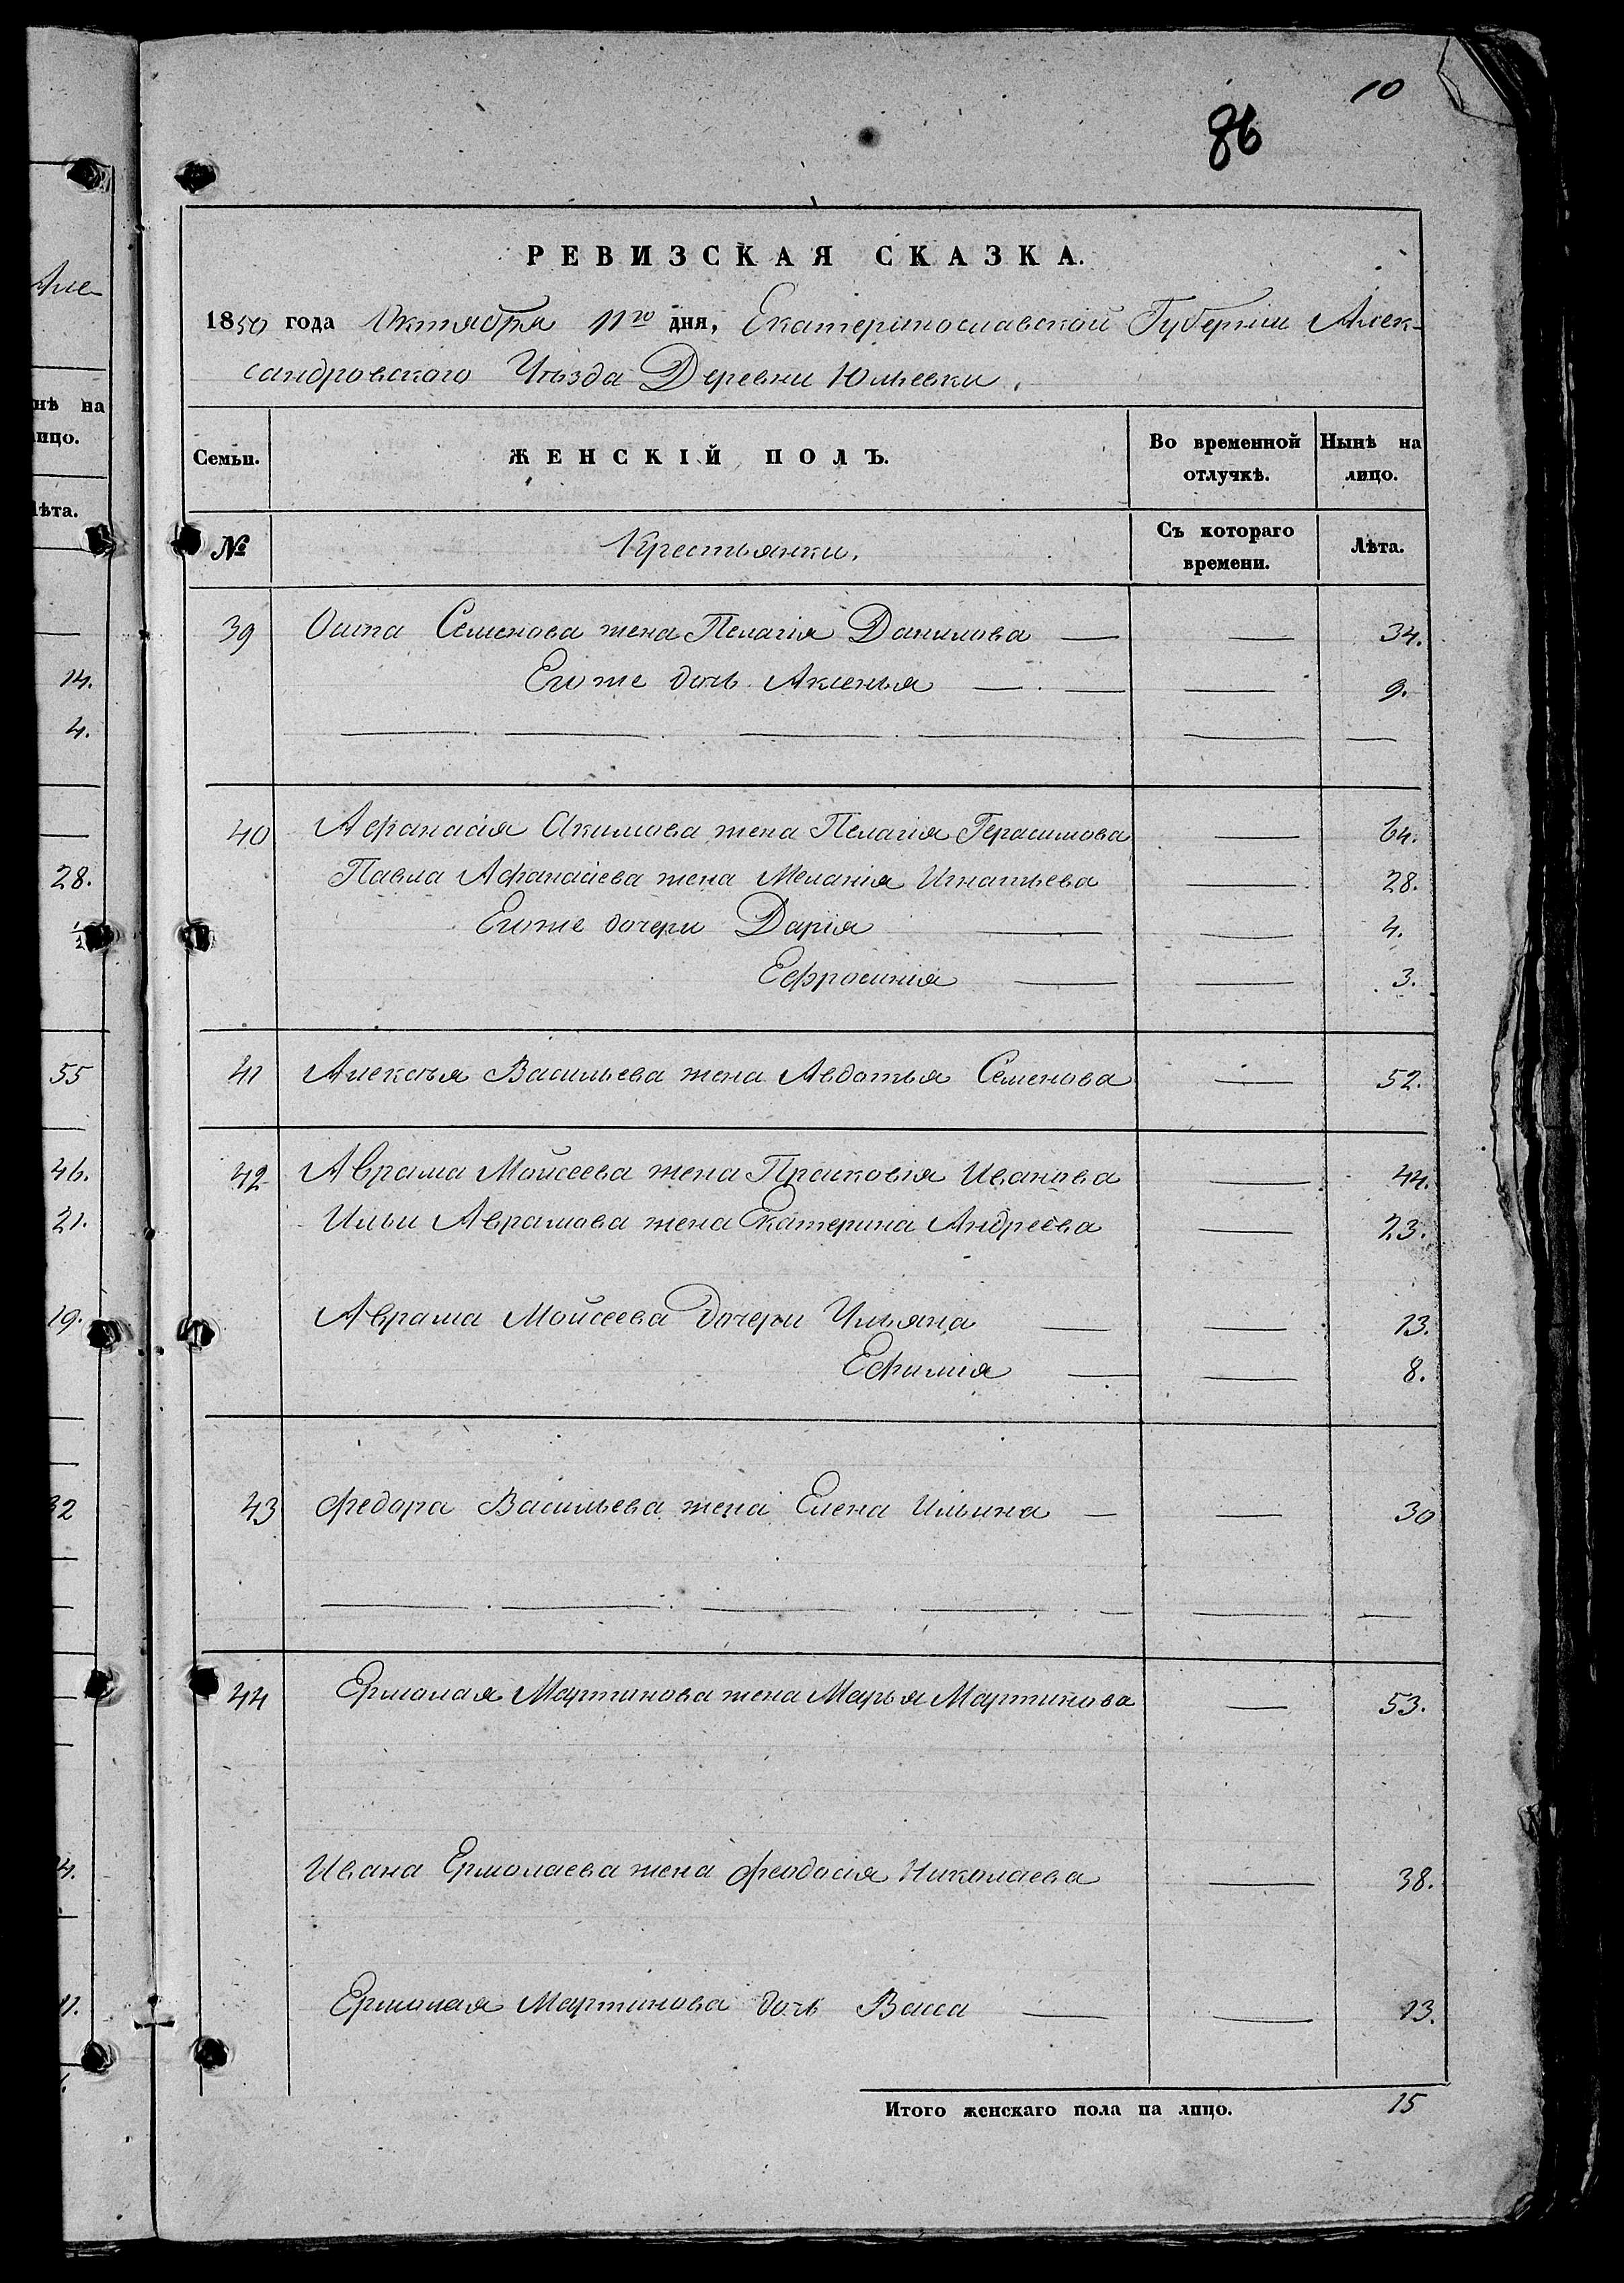 10
86
РЕВИЗСКАЯ СКАЗКА.
1850 года Октября 11го дня, Екатеринославской Губернии Алек-
сандровского Уѣзда Деревни Юльевки.
Семьи. ЖЕНСКІЙ ПОЛЪ. Во временной отлучкѣ. Нынѣ на лицо.
№ Крестьянки. Съ котораго времени. Лѣта.
39 Осипа Семенова жена Пелагія Данилова — — 34.
Его же дочь Аксенья — — — 9.
40 Афанасія Акимова жена Пелагія Герасимова — 64.
Павла Афанасіева жена Меланія Игнатьева — 28.
Его же дочери Дарія — — 4.
Ефросинія — — 3.
41 Алексѣя Васильева жена Авдотья Семенова — 52.
42 Аврама Мойсеева жена Прасковія Иванова — 44.
Ильи Аврамова жена Екатерина Андреева — 23.
Аврама Мойсеева дочери Ульяна — — 13.
Ефимія — — 8.
43 Федора Васильева жена Елена Ильина — — 30
44 Ермолая Мартинова жена Марья Мартинова — 53.
Ивана Ермолаева жена Феодосія Николаева — 38.
Ермолая Мартинова дочь Васса — — 13.
Итого женскаго пола на лицо. 15
Але-
нѣ на
лицо.
Лѣта.
14.
4.
28.
½
55
46.
21.
19.
32